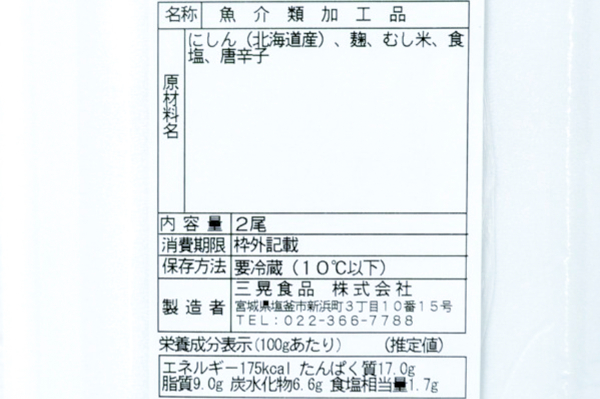 名称 魚介類加工品
原材料名 にしん（北海道産）、麹、むし米、食
塩、唐辛子
内容量 2尾
消費期限 枠外記載
保存方法 要冷蔵（10℃以下）
製造者 三晃食品 株式会社
宮城県塩釜市新浜町3丁目10番15号
TEL:022-366-7788
栄養成分表示(100gあたり) (推定値)
エネルギー175kcal たんぱく質17.0g
脂質9.0g 炭水化物6.6g 食塩相当量1.7g